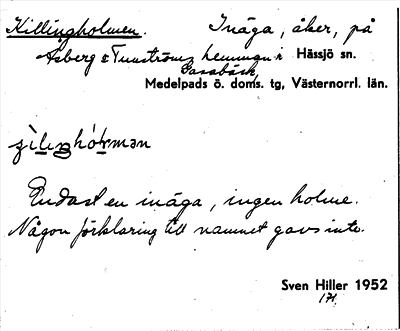 Killingholmen. Inäga, åker, på
Åsberg & Tunströms hemman i Hässjö sn.
Medelpads ö. doms. tg, Västernorrl. län.
Endast en inäga, ingen holme.
Någon förklaring till namnet gavs inte.
Sven Hiller 1952
171